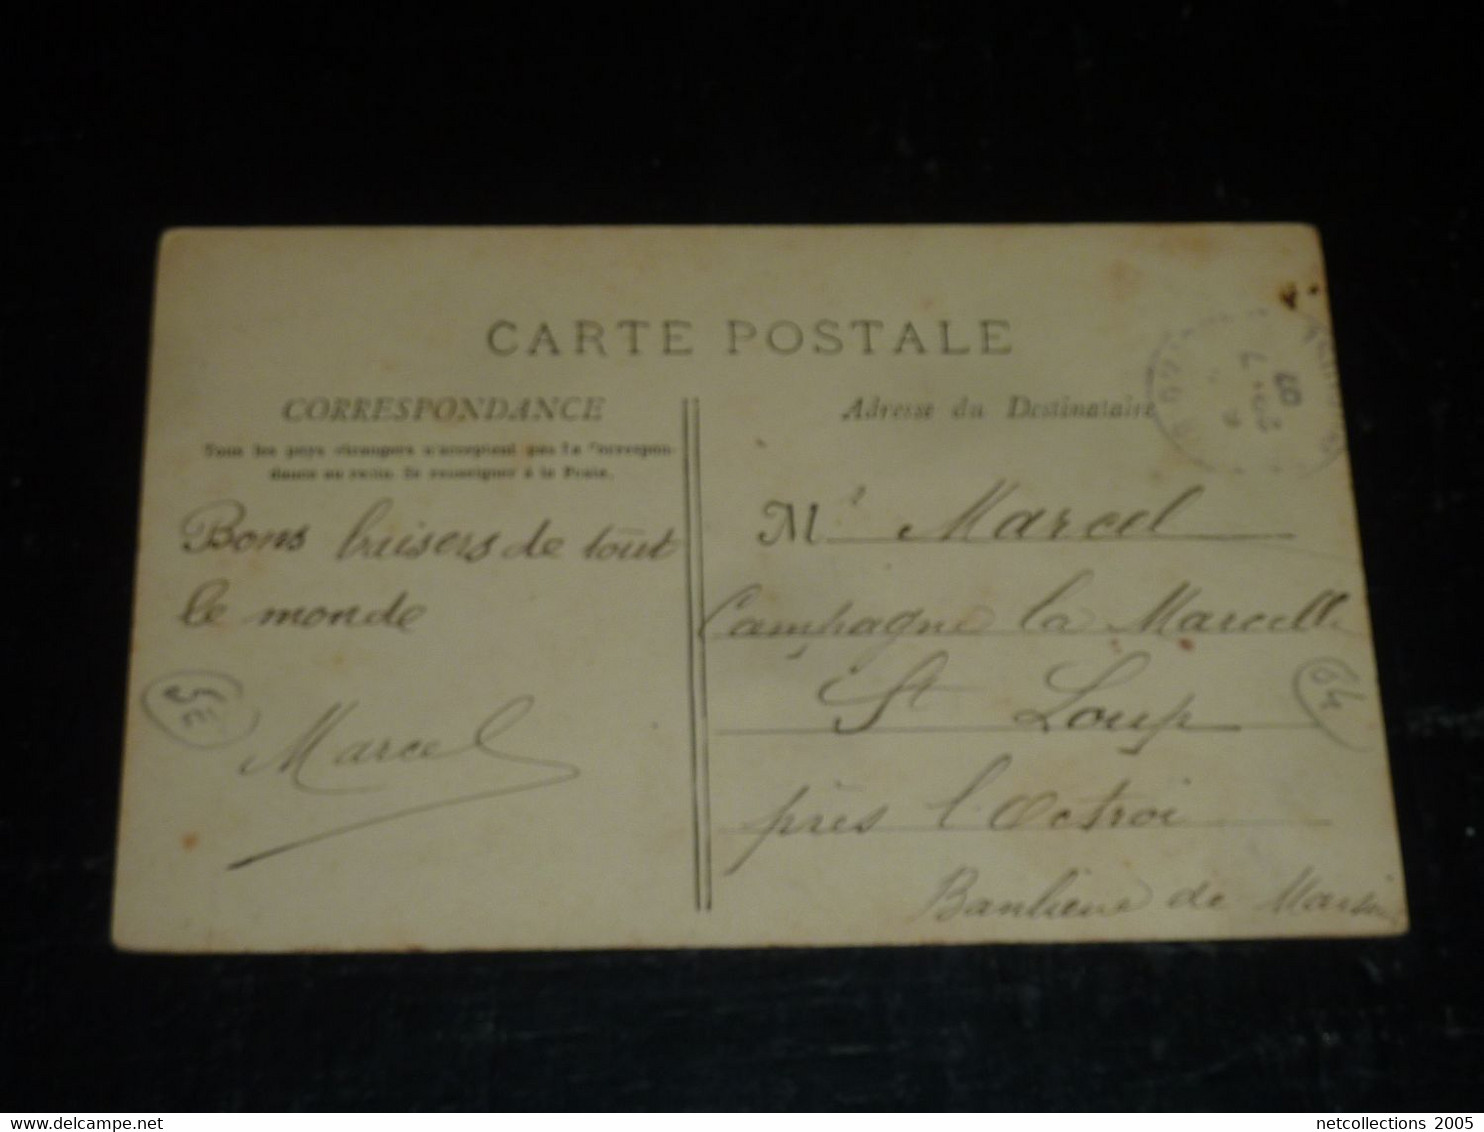 CARTE POSTALE
CORRESPONDANCE
Tous les pays étrangers n'acceptent pas la Correspon-
dance au recto. Se renseigner à la Poste.
Bons baisers de tout
le monde
Marcel
5E
Adresse du Destinataire
M r Marcel
Campagne la Marcelle
St Loup
près l'Octroi
Banlieue de
64
netcollections 2005